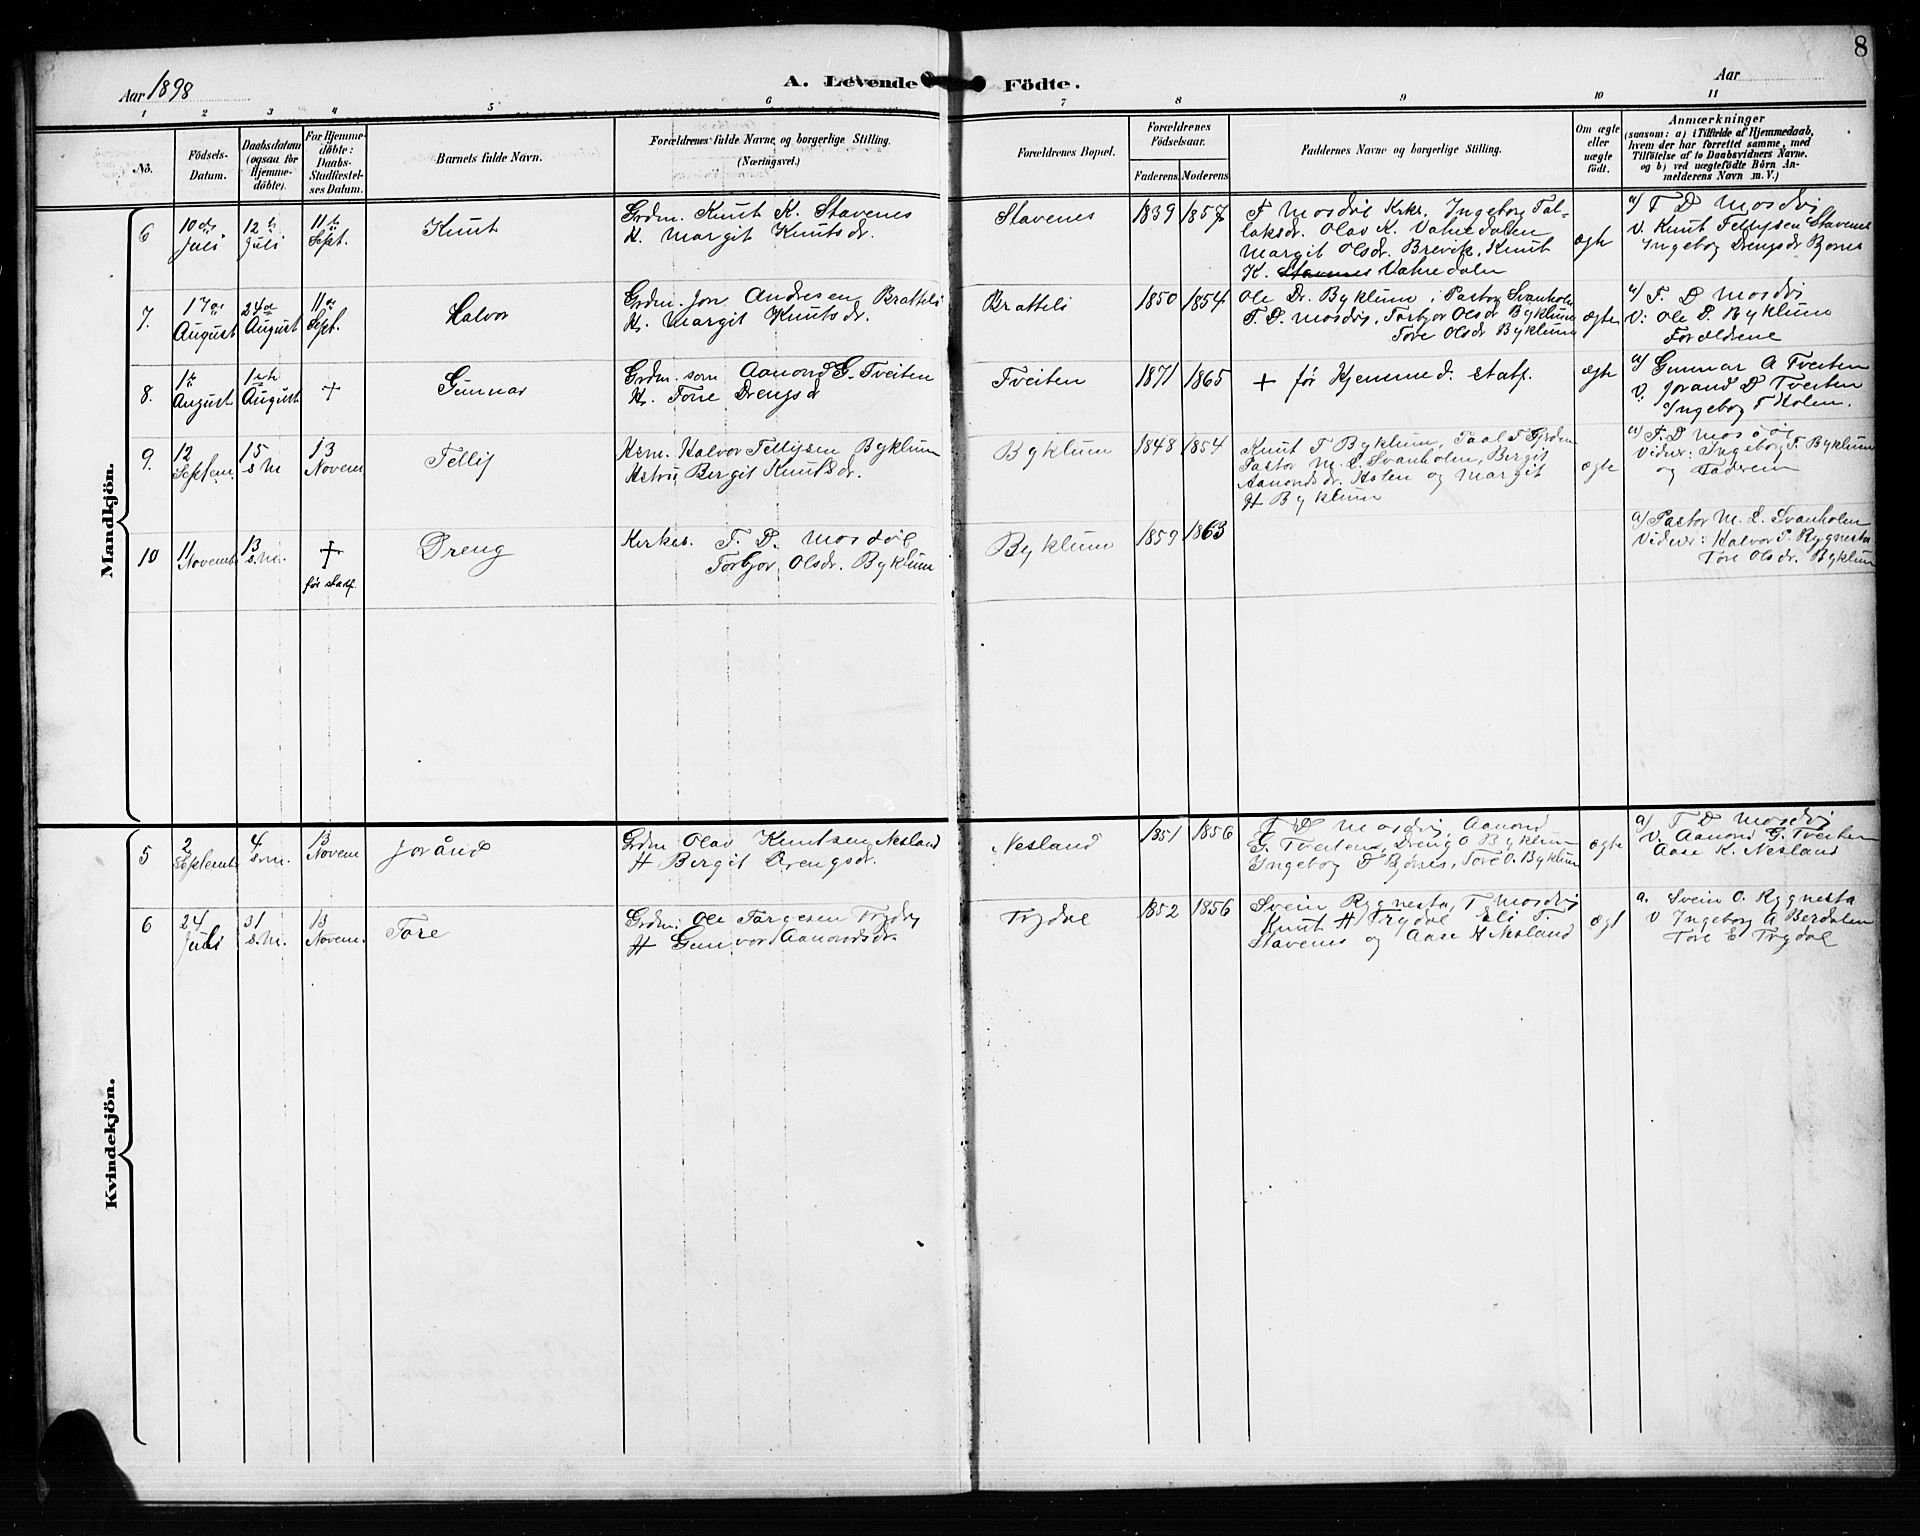 8
Aar 1898
A. Levende Födte.
Aar
1 2 3 4 5 6 7 8 9 10 11
No.
Födsels-Datum.
Daabsdatum (ogsaa for Hjemmedöbte).
For Hjemmedöbte: Daabs-Stadfæstelses Datum.
Barnets fulde Navn.
Forældrenes fulde Navne og borgerlige Stilling.
(Næringsvei.)
Forældrenes Bopæl.
Forældrenes Födselsaar.
Faderens. Moderens
Faddernes Navne og borgerlige Stilling.
Om ægte eller uægte født.
Anmærkninger
(saasom: a) i Tilfælde af Hjemmedaab, hvem der har forrettet samme, med Tilföielse af to Daabsvidners Navne, og b) ved uægtefödte Börn Anmelderens Navn m. V.)
Mandkjön.
6 10 Juli 12 Juli 11 Sept. Knut
Grdm. Knut K. Stavenes
H. Margit Knutsdr.
Stavenes 1839 1857
T Mosdøl Kirks. Ingeborg Tal-
laksdr. Olav K. Vatnedalen
Margit Olsdr. Brevik, Knut
K. Stavenes Vatnedalen
ægte
a) T D Mosdøl
V. Knut Fellejsen Stavenes
Ingebog Drengsdr Bjønes
7. 17 August 24 August 11 Sept. Halvor
Grdm. Jon Andresen Bratteli
H. Margit Knutsdr.
Bratteli 1850 1854
Ole Dr. Byklum, Pastor Svanholm
T. D. Mosdøl, Torbjør Olsdr Byklum
Tore Olsdr Byklum
ægte
a) T. D Mosdøl
V: Ole D. Byklum
Forældrene
8. 1 August 1 August + Gunnar
Grdm. søn Aanond G. Tveiten
H. Torre Drengsd
Tveiten 1871 1865
+ før Hjemme d. statf.
ægte
a) Gunnar A Tveiten
V. Jorand D Tveiten
Ingebog T Holen.
9. 12 Septem. 15 s.M 13 Novem Tellif
Hsm. Halvor Tellefsen Byklum
Hstru Bergit Knutsdr.
Byklum 1848 1854
Knut T Byklum, Paal T
Pastor M. L. Svanholm, Bergit
Aanondsdr. Holen og Margit
H Byklum
ægte
a) T. D Mosdøl
Vidner: Ingeborg T. Byklum
og Faderen
10 11 Novemb 13 s.M. + før stadf. Dreng
Kirkes. T. D. Mosdøl
Torbjør Olsdr. Byklum
Byklum 1859 1863
a) Pastor M. L. Svanholm
Vidner: Halvor P. Rygnestad
Tore Olsdr. Byklum
Kvindekjön.
5 2 Septemb 4 s.m. 13 Novem Joränd
Grdm Olav Knutsen Nesland
H Bergit Drengsdr.
Nesland 1851 1856
T D Mosdøl, Aanond
G. Tveiten, Dreng O Byklum
Yngebog D Bjønes, Tore O. Byklum
ægte
a) T D Mosdøl
V. Aanond G. Tveiten
Aase K. Nesland
6 24 Juli 31 s.M. 13 Novem. Tore
Grdm: Ole Targesen Trydøl
H Gunvor Aanondsdr
Trydøl 1852 1856
Svein Rygnesta, T Mosdøl
Knut H Trydøl Eli T.
Stavenes og Aase H Nesland
ægt
a. Svein O. Rygnesta
v Ingeborg A Berdalen
Tore E Trydøl